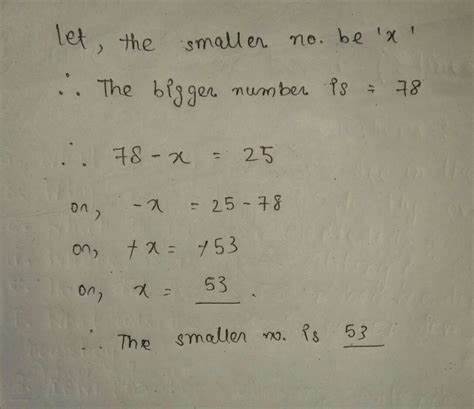 let, the smaller no. be 'x'
∴ The bigger number is = 78
∴ 78 - x = 25
or, -x = 25 - 78
or, +x = +53
or, x = 53.
∴ The smaller no. is 53